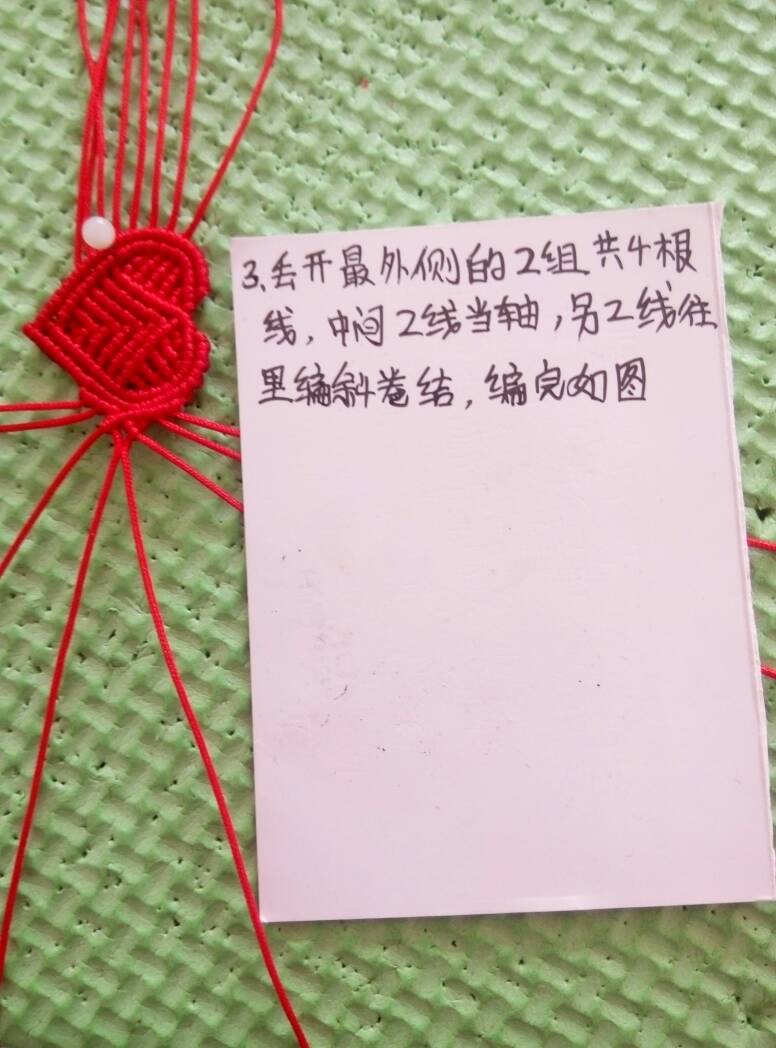 3、丢开最外侧的2组共4根
线，中间2线当轴，另2线往
里编斜卷结，编完如图